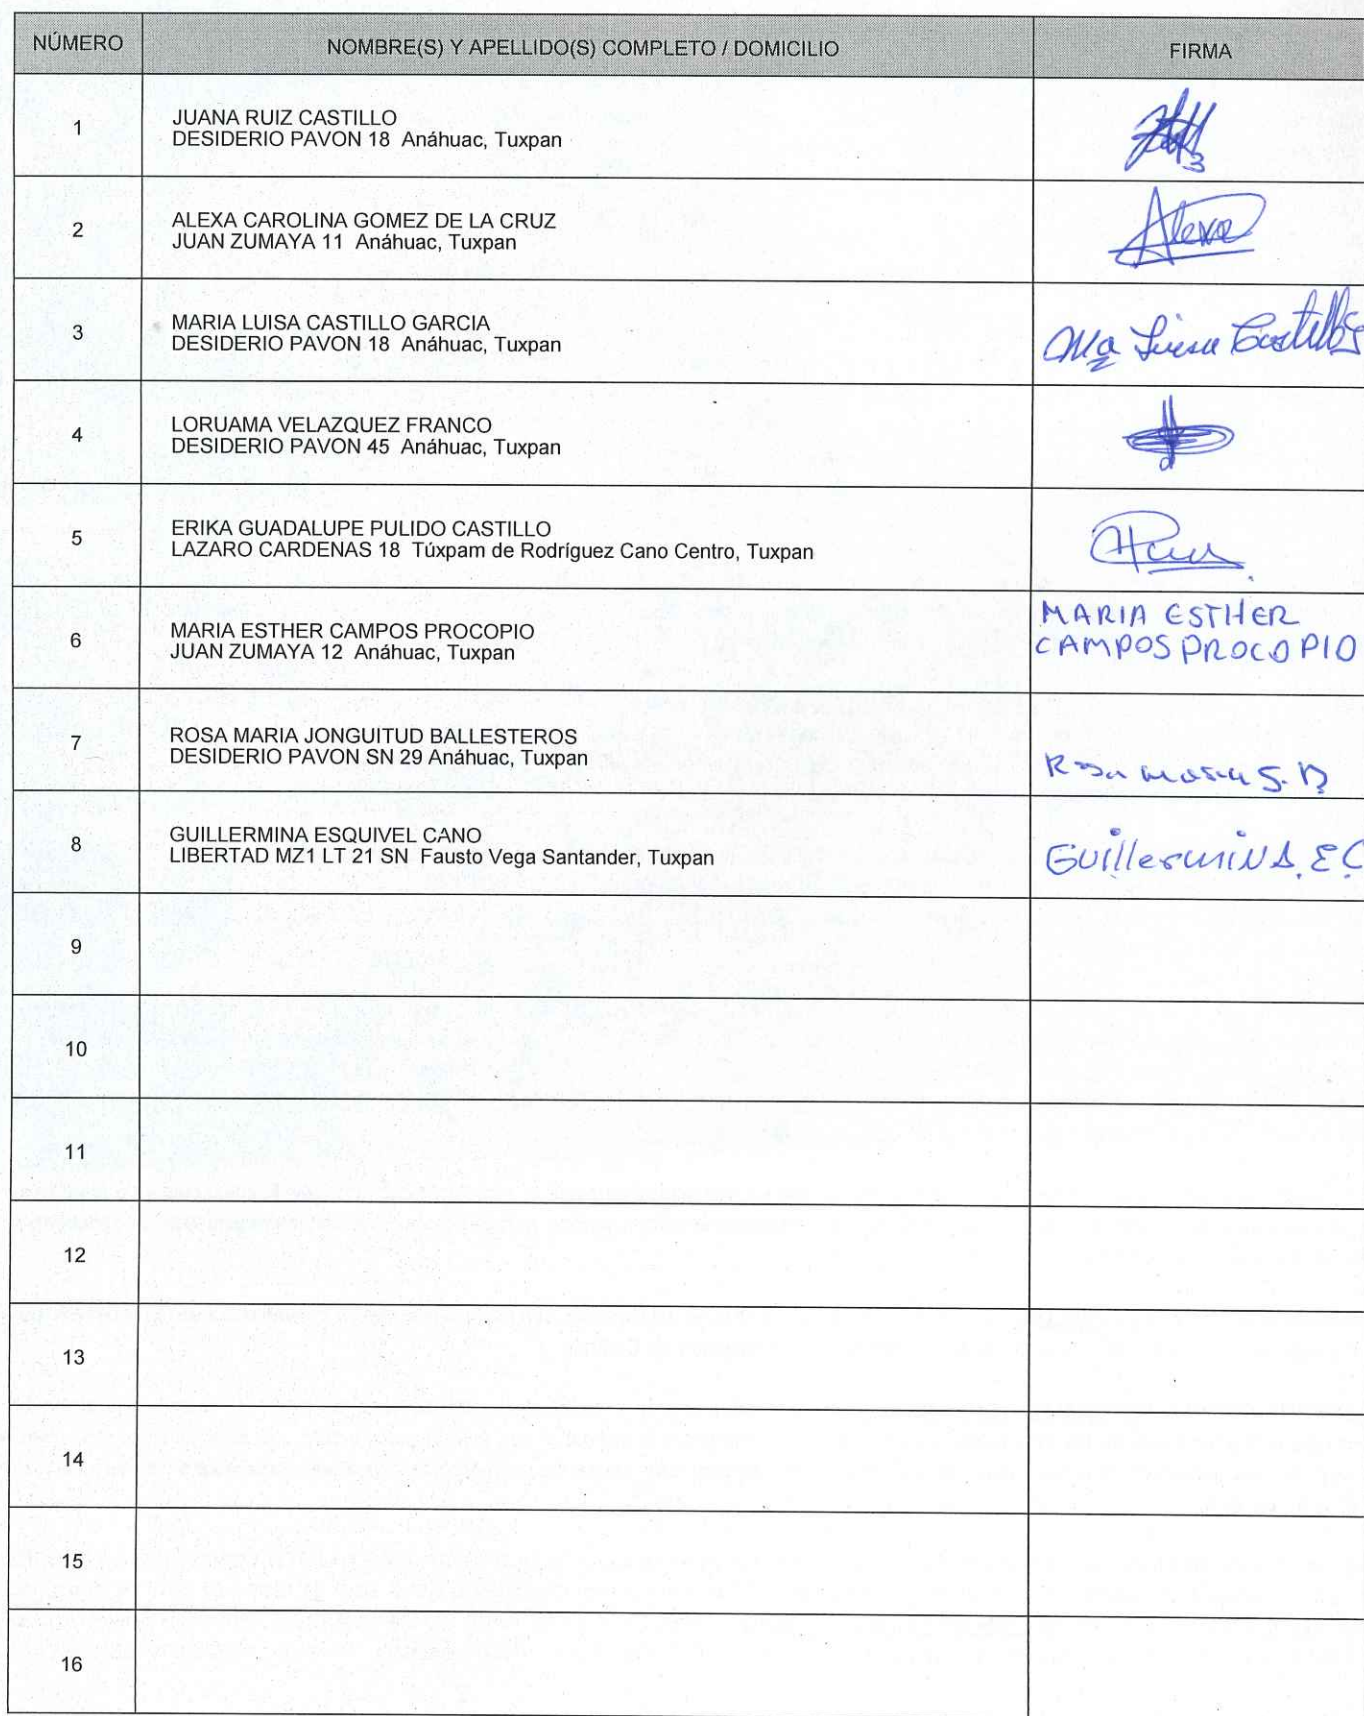 NÚMERO NOMBRE(S) Y APELLIDO(S) COMPLETO / DOMICILIO FIRMA
1 JUANA RUIZ CASTILLO
DESIDERIO PAVON 18 Anáhuac, Tuxpan
2 ALEXA CAROLINA GOMEZ DE LA CRUZ
JUAN ZUMAYA 11 Anáhuac, Tuxpan
Alexa
3 MARIA LUISA CASTILLO GARCIA
DESIDERIO PAVON 18 Anáhuac, Tuxpan
Ma Luisa Castillo G
4 LORUAMA VELAZQUEZ FRANCO
DESIDERIO PAVON 45 Anáhuac, Tuxpan
5 ERIKA GUADALUPE PULIDO CASTILLO
LAZARO CARDENAS 18 Túxpam de Rodríguez Cano Centro, Tuxpan
6 MARIA ESTHER CAMPOS PROCOPIO
JUAN ZUMAYA 12 Anáhuac, Tuxpan
MARIA ESTHER
CAMPOS PROCOPIO
7 ROSA MARIA JONGUITUD BALLESTEROS
DESIDERIO PAVON SN 29 Anáhuac, Tuxpan
Rosa Maria J. B
8 GUILLERMINA ESQUIVEL CANO
LIBERTAD MZ1 LT 21 SN Fausto Vega Santander, Tuxpan
GuillermiNA. E C
9
10
11
12
13
14
15
16